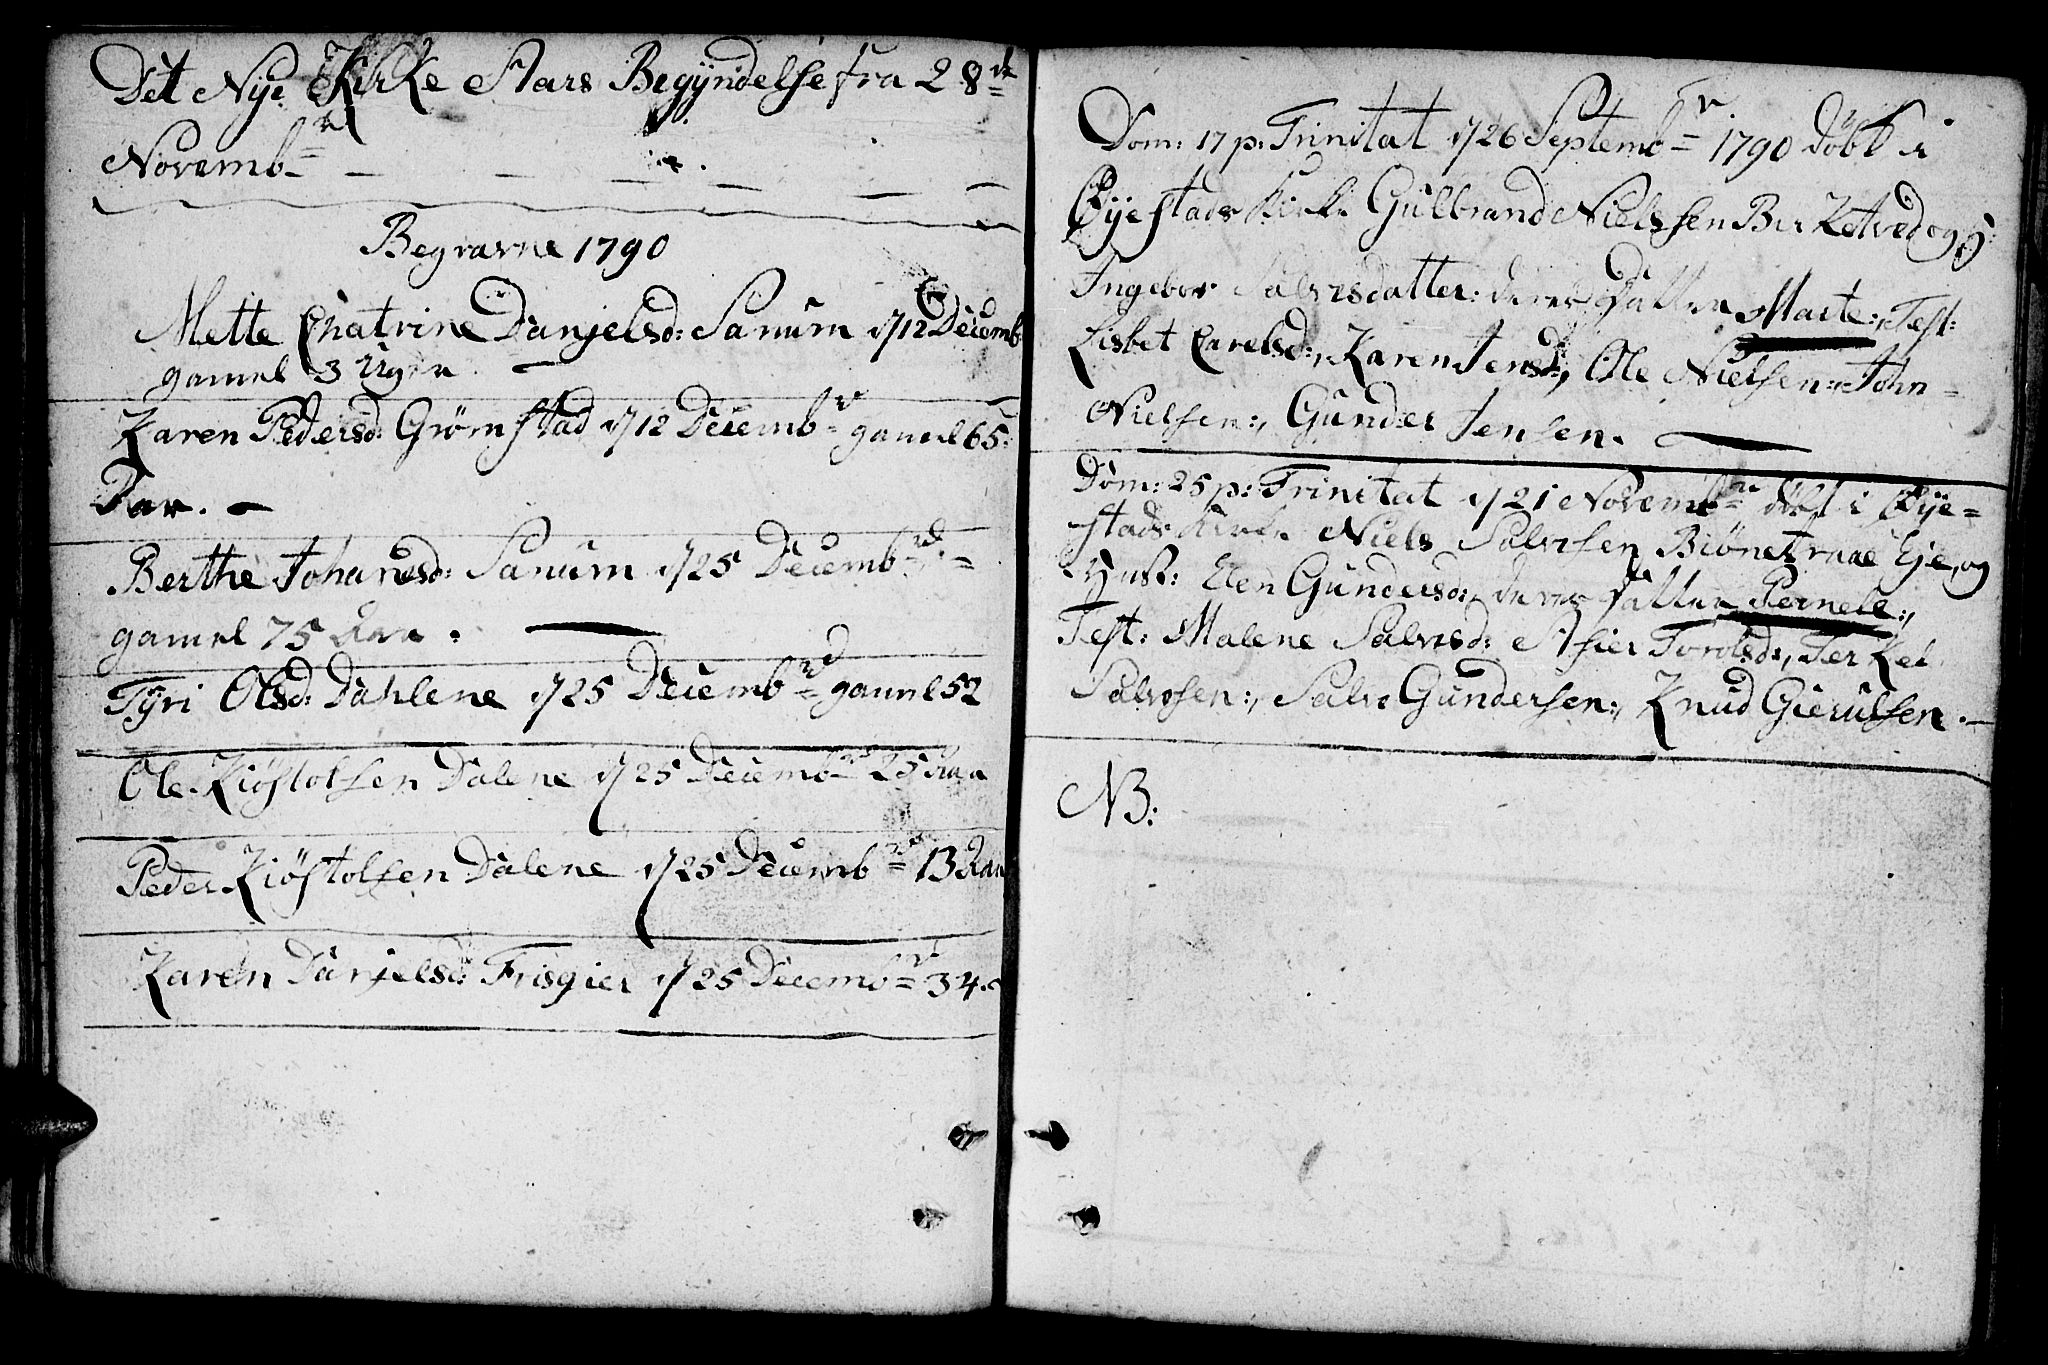 Det Nye Kirke Aars Begÿndelse fra 28de
Novembr
Begravne 1790
Mette Chatrine Danjelsd: Sanum d 12 Decemb
gamel 3 Uger
Karen Pedersd: Grømstad d 12 Decembr gamel 65
Aar.
Berthe Johanesd: Sanum d 25 Decembr
gamel 75 Aar.
Tÿri Olsd: Dahlene d 25 Decembr gamel 52
Ole Kiöstolsen Dalene d 25 Decembr 25 Aar
Peder Kiöstolsen Dalene d 25 Decembr 13 Aar
Karen Danjelsd: Frisgier d 25 Decembr 34.
Dom: 17 p: Trinitat d 26 Septembr 1790 döbt i
Øÿestads Kirke Gulbrand Nielssen Birketved og H:
Ingebor Salvesdatter: deres Datter Marte:, Test:
Lisbet Carelsd:, Karen Jensd:, Ole Nielsen:, John
Nielsen:, Gunder Jensen.
Dom: 25 p: Trinitat d 21 Novembr döbt i Øÿe=
stads Kirke Niels Salvesen Biønetraae Eje, og
Hust: Elen Gundersd:, deres Datter Pernele:,
Test: Malene Salvesd: Asier Torolsd:, Terkel
Salvesen:, Salve Gundersen:, Knud Gierulsen.
NB: